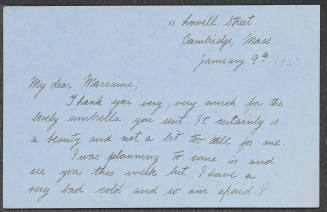 11 Lowell Street
Cambridge, Mass
January 9th 1923
My dear Marraine,
Thank you very, very much for the
lovely umbrella you sent. It certainly is
a beauty and not a bit too tall for me.
I was planning to come in and
see you this week but I have a
very bad cold and so am afraid I